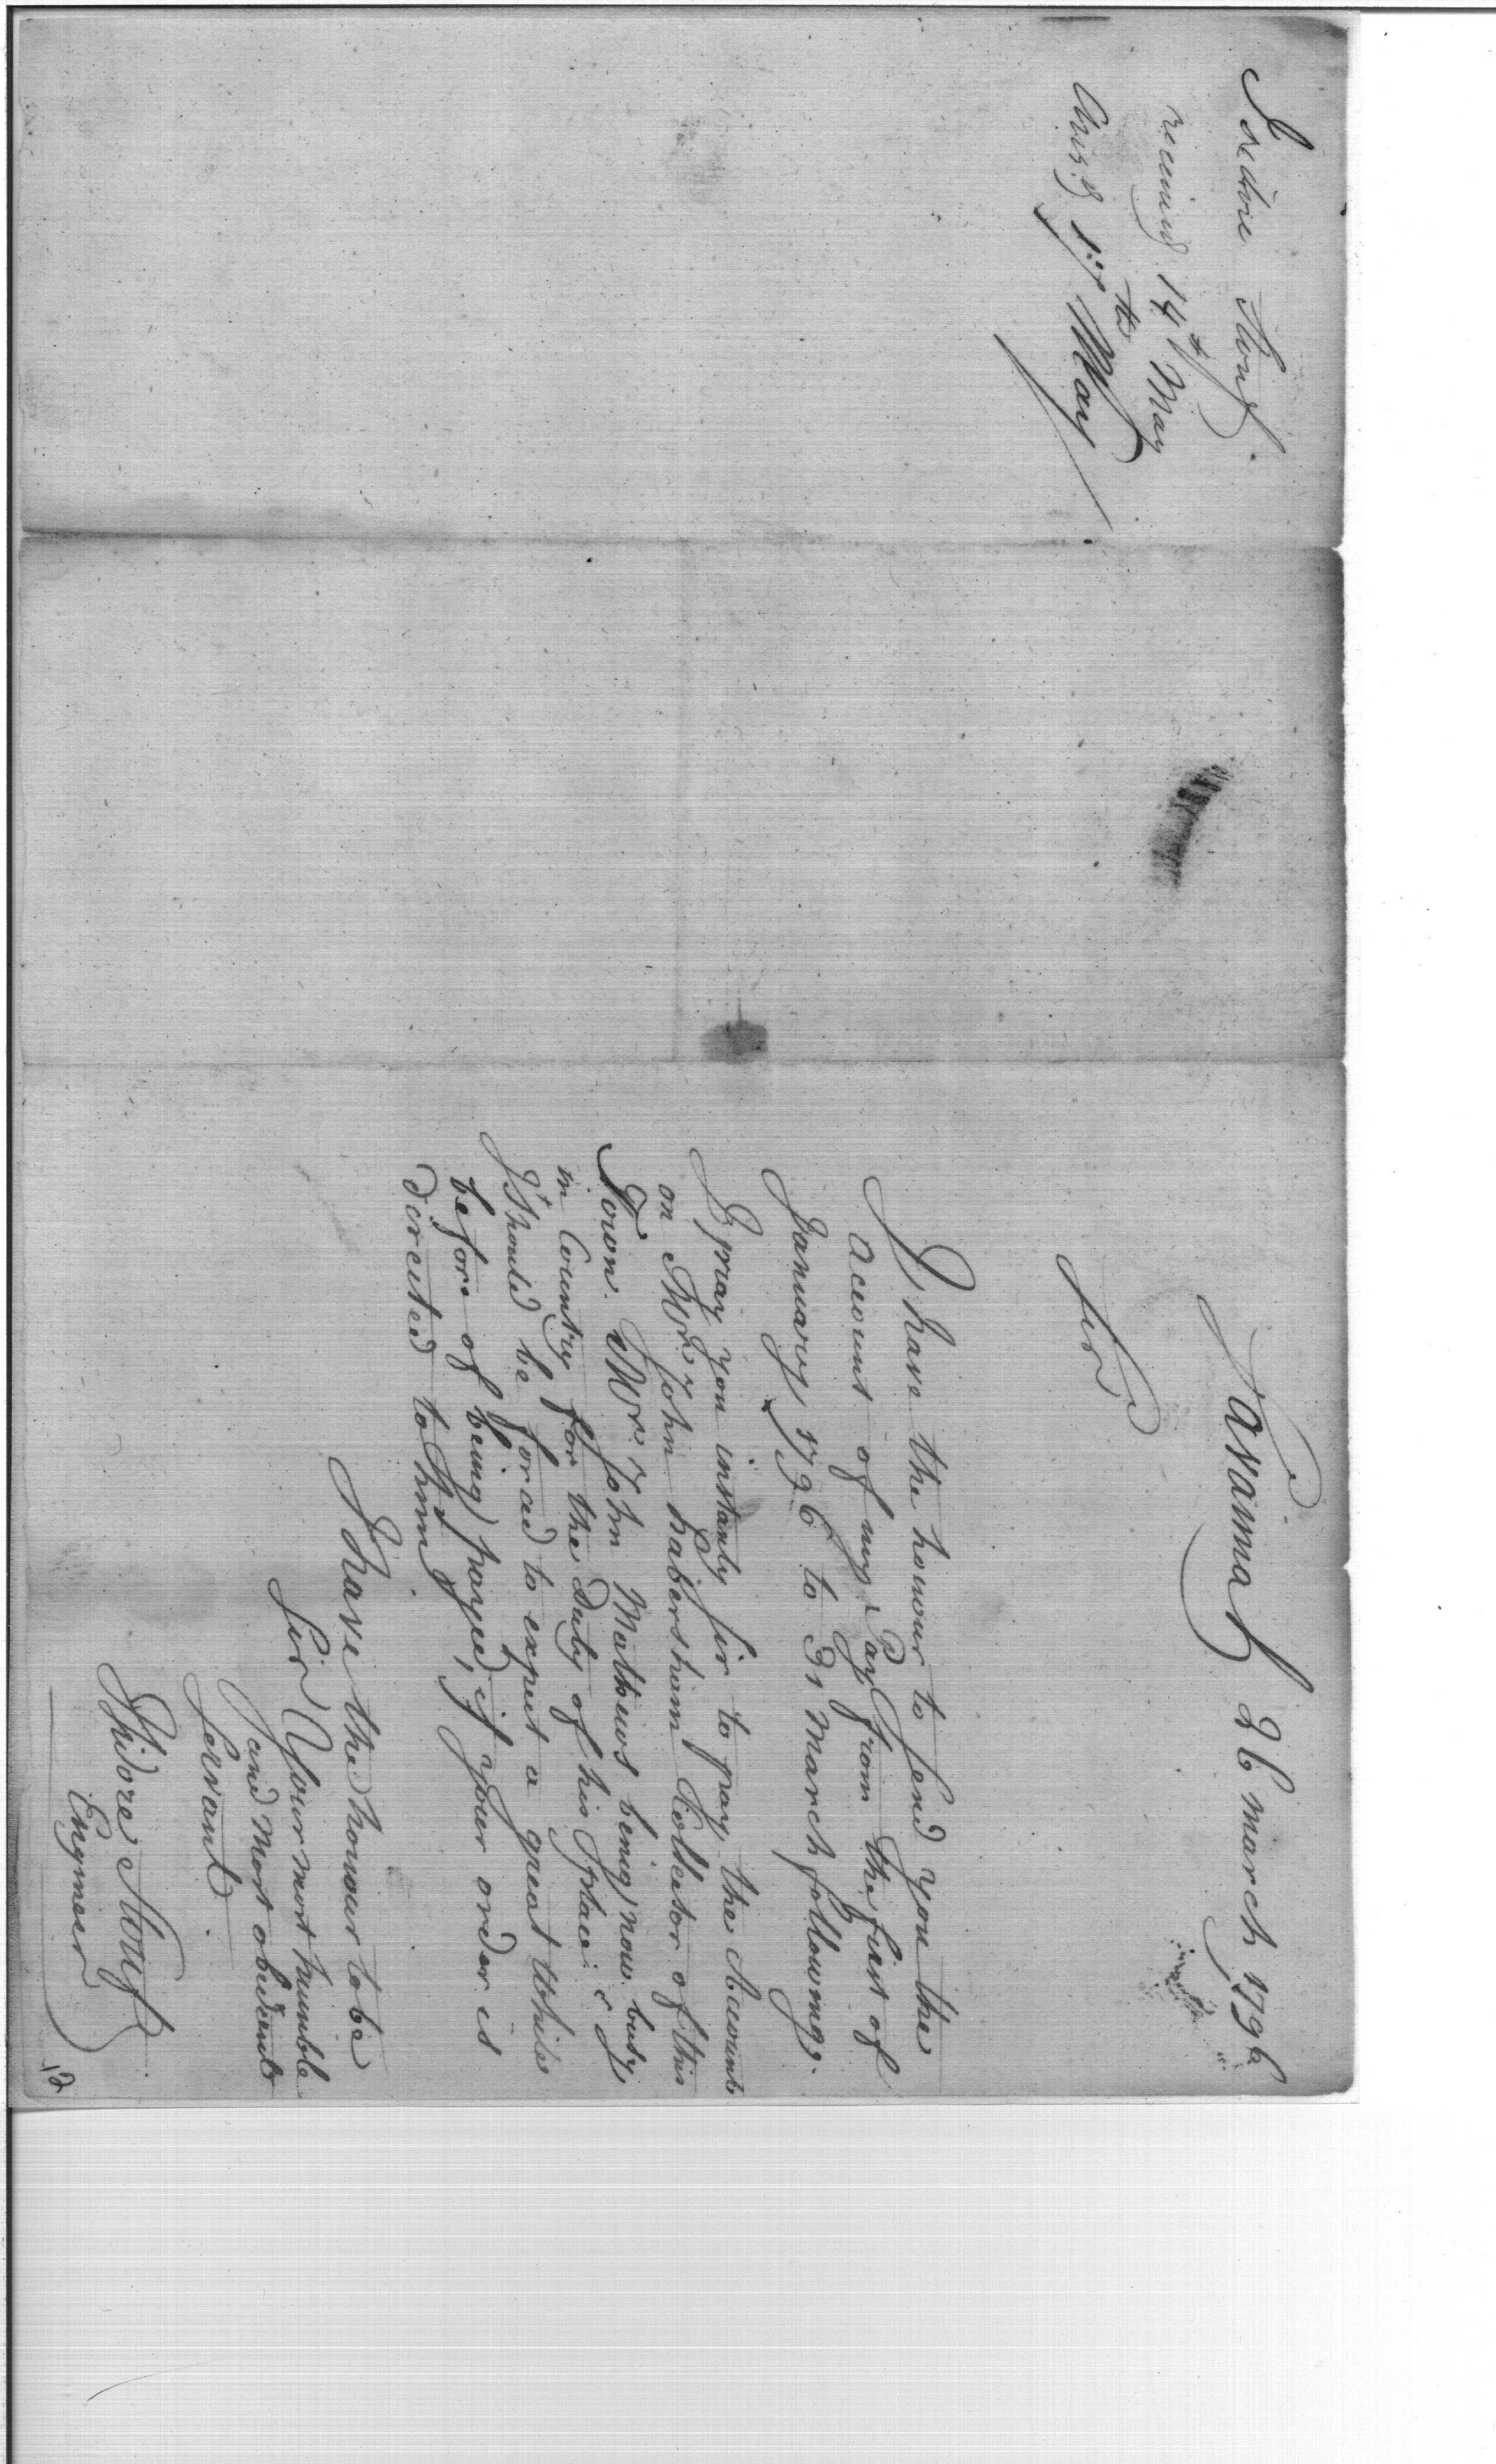 Isedore Stouf.
received 14th May
Ans.d 17th May
Savannah 26 march 1796
Sir
I have the honour to send you the
account of my Pay from the first of
January 1796 to 31 march following.
I pray you instanly sir to pay the Account
on Mr. John habersham Collector of this
Town. Mr. John Mathews being now busy
in Country for the Duty of his place; &
I should be forced to expect a great while
before of being payed, if your order is
directed to him.
I have the honour to be
Sir Your most humble
and most obedient
servant.
Isidore Stouf
Engineer
12